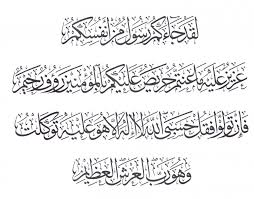 لقد جاءكم رسول من أنفسكم
عزيز عليه ما عنتم حريص عليكم بالمؤمنين رءوف رحيم
فإن تولوا فقل حسبي الله لا إله إلا هو عليه توكلت
وهو رب العرش العظيم